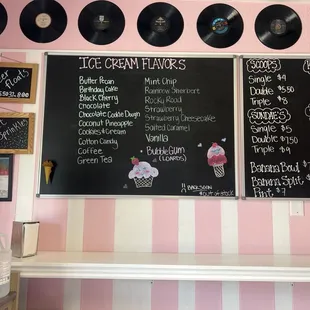 ICE CREAM FLAVORS
Butter Pecan
Birthday Cake
Black Cherry
Chocolate
Chocolate Cookie Dough
Coconut Pineapple
Cookies & Cream
Cotton Candy
Coffee
Green Tea
Mint Chip
Rainbow Sherbert
Rocky Road
Strawberry
Strawberry Cheesecake
Salted Caramel
Vanilla
Bubble Gum
BACK SOON
SCOOPS
Single $4
Double $5.50
Triple $8
SUNDAES
Single $5
Double $7.50
Triple $9
Banana Bowl
Banana Split
Pint $7
Floats
Sprinkles